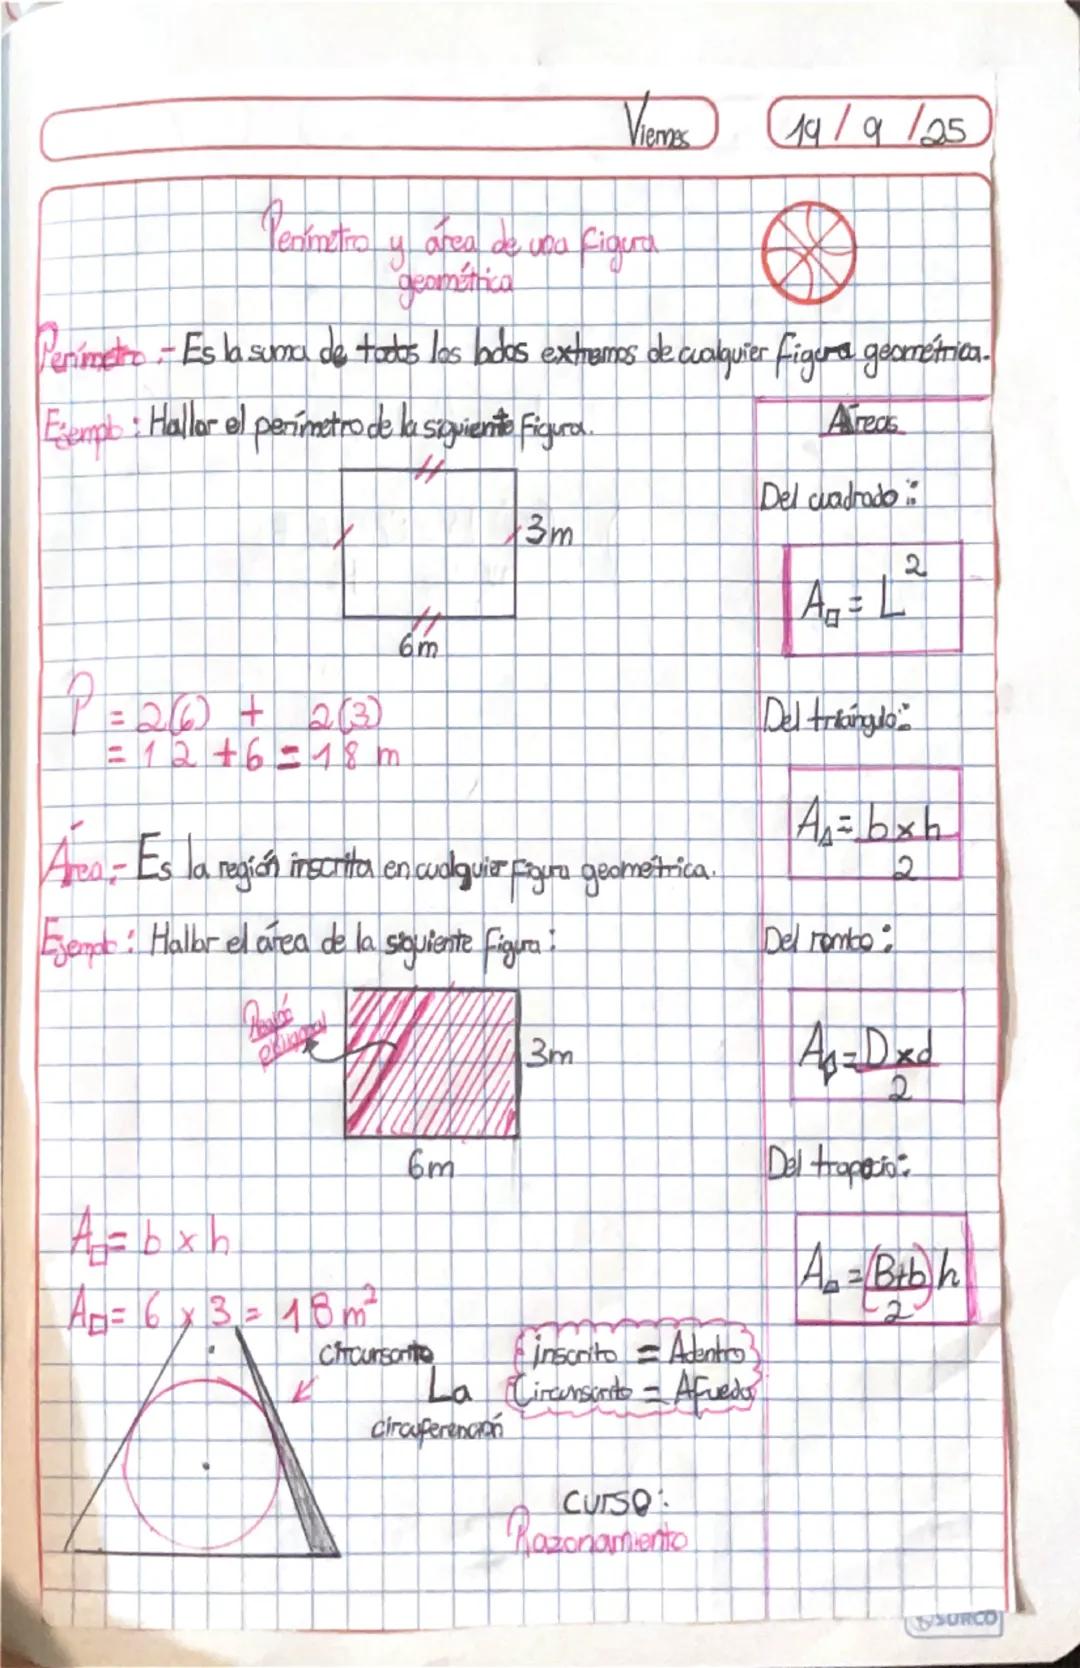 Viernes 19/9/25
Perímetro y área de una figura
geométrica
Perímetro.- Es la suma de todos los lados extremos de cualquier figura geométrica.
Ejemplo: Hallar el perímetro de la siguiente figura.
3m
6m
P = 2(6) + 2(3)
= 12 + 6 = 18 m
Área.- Es la región inscrita en cualquier figura geométrica.
Ejemplo: Hallar el área de la siguiente figura:
Región
3m
6m
A□= b x h
A□= 6 x 3 = 18 m²
circunscrito
La
circuferención
inscrito = Adentro
Circunscrito = Afueda
curso:
Razonamiento
Áreas
Del cuadrado:
A□ = L²
Del triángulo:
A△ = b x h
2
Del rombo:
A◊ = D x d
2
Del trapecio:
A = (B+b) h
2
SURCO